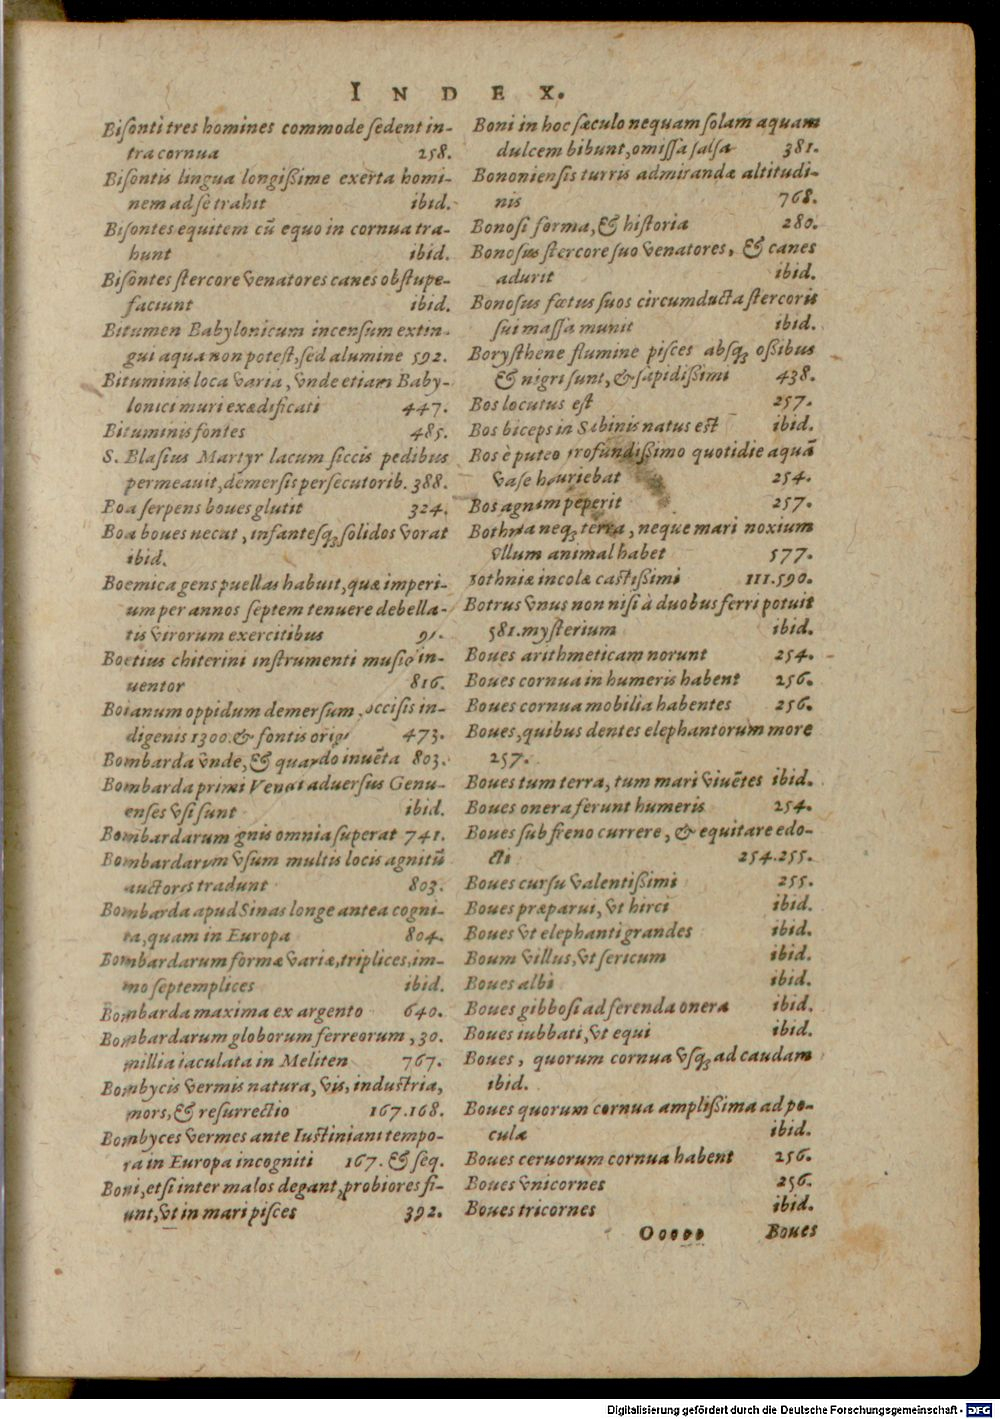 INDEX.
Biſonti tres homines commode ſedent in-
tra cornua 258.
Biſontis lingua longißime exerta homi-
nem ad ſe trahit ibid.
Biſontes equitem cũ equo in cornua tra-
hunt ibid.
Biſontes ſtercore venatores canes obſtupe-
faciunt ibid.
Bitumen Babylonicum incenſum extin-
gui aqua non poteſt, ſed alumine 592.
Bituminis loca varia, vnde etiam Baby-
lonici muri exædificati 447.
Bituminis fontes 485.
S. Blaſius Martyr lacum ſiccis pedibus
permeauit, demerſis perſecutorib. 388.
Boa ſerpens boues glutit 324.
Boa boues necat, infanteſq₃ ſolidos vorat
ibid.
Boemica gens puellas habuit, quæ imperi-
um per annos ſeptem tenuere debella-
tis virorum exercitibus 91.
Boetius chiterini inſtrumenti muſici in-
uentor 816.
Boianum oppidum demerſum, occiſis in-
digenis 1300. & fontis orig 473.
Bombarda vnde, & quando inuẽta 803.
Bombarda primi Veneti aduerſus Genu-
enſes vſi ſunt ibid.
Bombardarum ignis omnia ſuperat 741.
Bombardarum vſum multis locis agnitũ
auctores tradunt 803.
Bombarda apud Sinas longe antea cogni-
ta, quam in Europa 804.
Bombardarum formæ variæ, triplices, im-
mo ſeptemplices ibid.
Bombarda maxima ex argento 640.
Bombardarum globorum ferreorum, 30.
millia iaculata in Meliten 767.
Bombycis vermis natura, vis, induſtria,
mors, & reſurrectio 167.168.
Bombyces vermes ante Iuſtiniani tempo-
ra in Europa incogniti 167. & ſeq.
Boni, etſi inter malos degant, probiores fi-
unt, vt in mari piſces 392.
Boni in hoc ſæculo nequam ſolam aquam
dulcem bibunt, omiſſa ſalſa 381.
Bononienſis turris admirandæ altitudi-
nis 768.
Bonoſi forma, & hiſtoria 280.
Bonoſus ſtercore ſuo venatores, & canes
adurit ibid.
Bonoſus fœtus ſuos circumducta ſtercoris
ſui maſſa munit ibid.
Boryſthene flumine piſces abſq₃ oßibus
& nigri ſunt, & ſapidißimi 438.
Bos locutus eſt 257.
Bos biceps in Sabinis natus eſt ibid.
Bos è puteo profundißimo quotidie aquã
vaſe hauriebat 254.
Bos agnum peperit 257.
Bothnia neq₃ terra, neque mari noxium
vllum animal habet 577.
Bothniæ incolæ caſtißimi 111.590.
Botrus vnus non niſi à duobus ferri potuit
581. myſterium ibid.
Boues arithmeticam norunt 254.
Boues cornua in humeris habent 256.
Boues cornua mobilia habentes 256.
Boues, quibus dentes elephantorum more
257.
Boues tum terra, tum mari viuẽtes ibid.
Boues onera ferunt humeris 254.
Boues ſub freno currere, & equitare edo-
cti 254.255.
Boues curſu valentißimi 255.
Boues præparui, vt hirci ibid.
Boues vt elephanti grandes ibid.
Boum villus, vt ſericum ibid.
Boues albi ibid.
Boues gibboſi ad ferenda onera ibid.
Boues iubbati, vt equi ibid.
Boues, quorum cornua vſq₃ ad caudam
ibid.
Boues quorum cornua amplißima ad po-
cula ibid.
Boues ceruorum cornua habent 256.
Boues vnicornes 256.
Boues tricornes ibid.
Ooooo Boues
Digitalisierung gefördert durch die Deutsche Forschungsgemeinschaft - DFG